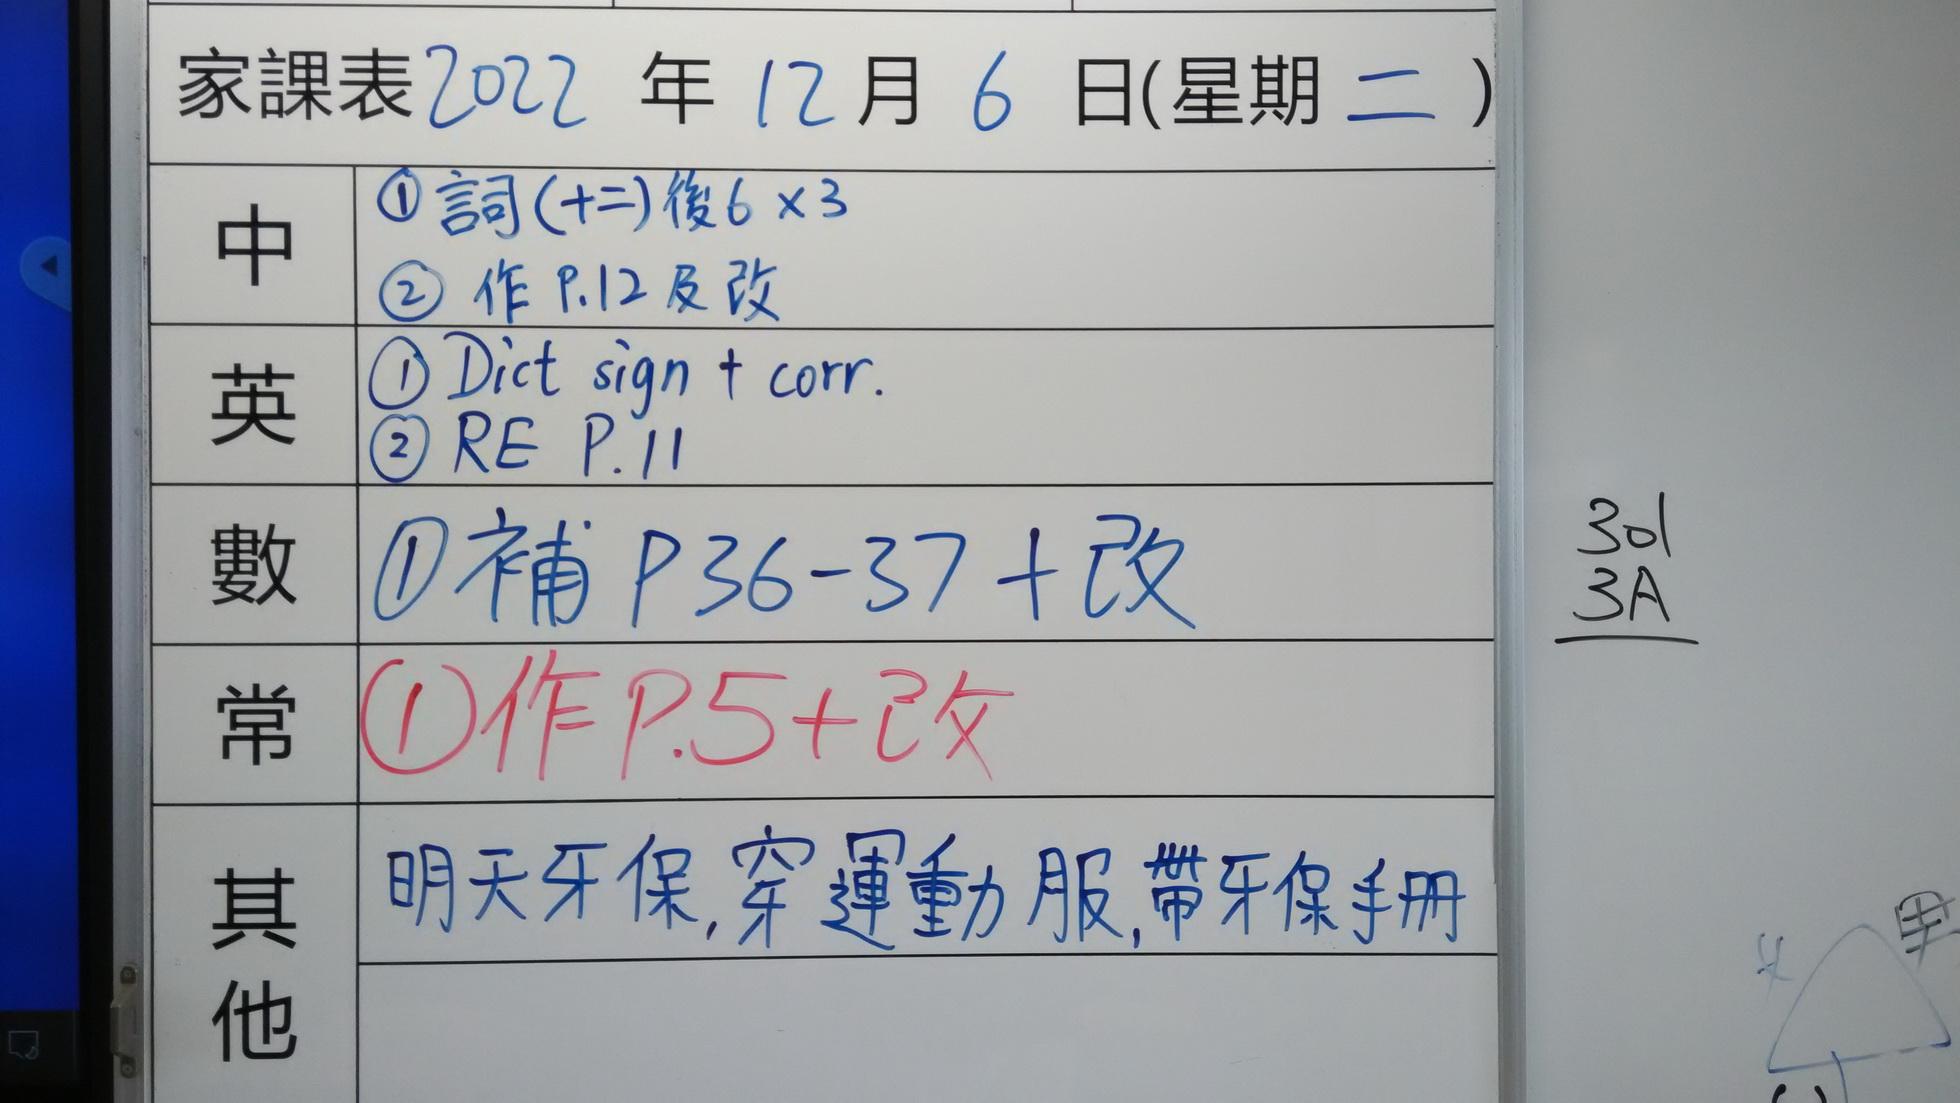 家課表2022 年 12月 6 日(星期 二 )
中
① 詞(十二)後6 x 3
② 作 P.12 及 改
英
① Dict sign + corr.
② RE P.11
數
①補 P 36-37 + 改
常
①作 P.5 + 改
其他
明天牙保,穿運動服,帶牙保手冊
3d
3A